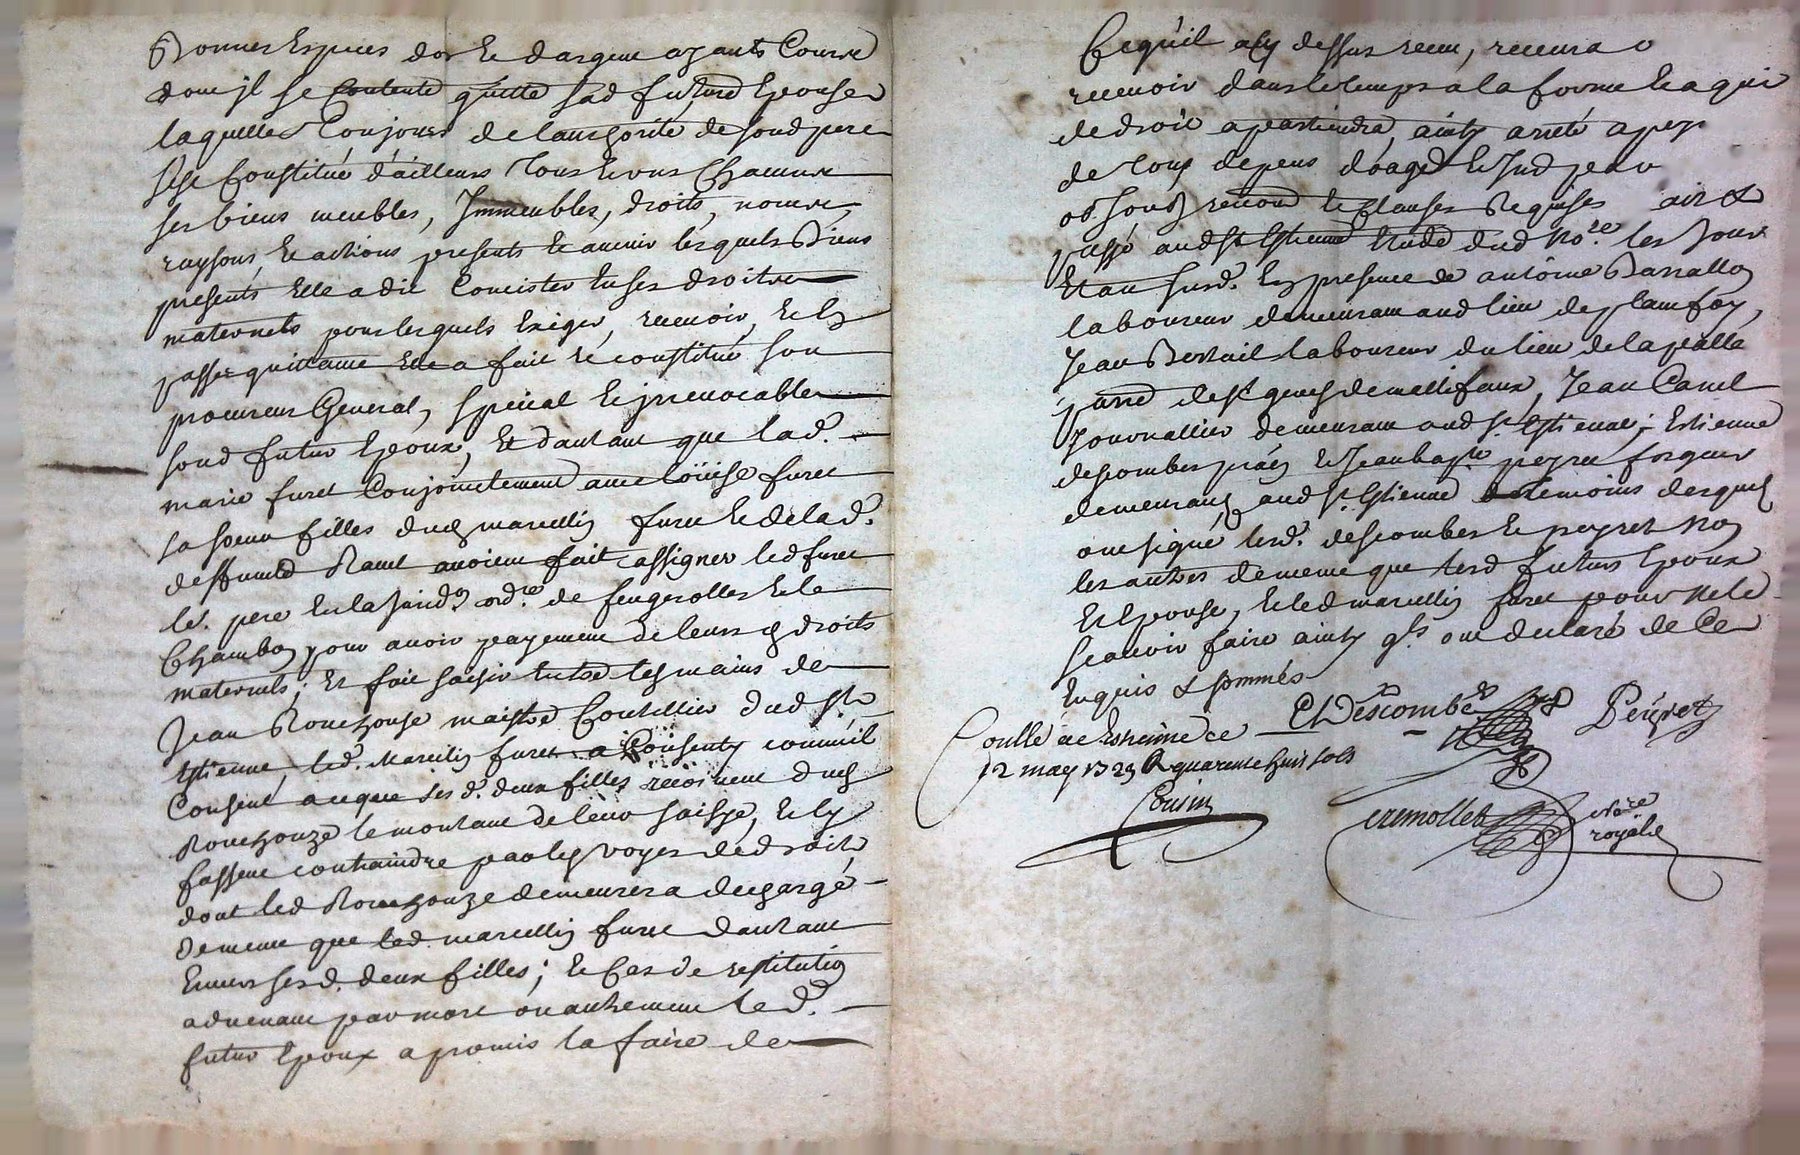 Bonnes Especes dor Et dargent ayants Cours
dont jl se Contente quitte sad future Epouse
laquelle Toujours de lauthorité de sond pere
sEst Constitué d'ailleurs Tous Et uns Chacuns
ses biens meubles, Immeubles, droits, noms,
raysons, Et actions presents Et avenir lesquels Biens
presents Elle a dit Consister En ses droits
maternels pour lesquels Exiger, recevoir, Et En
passer quittance Elle a fait Et constitué son
procureur General, spécial Et jrrevocable
sond futur Epoux, Et dautant que lad.
marie furet Conjointement avec Loüise furet
sa soeur filles dud marcellin furet Et de lad.
deffunte avoient fait assigner led furet
le. pere En la Jurid.on ord.re de feugerolles Et le
Chambon pour avoir payement de leurs droits
maternels; Et fait saisir Entre les mains de
Jean Rouchouse maistre Coutellier dud St
Estienne, led. Marcelin furet a Consenty comme il
Consent a ce que ses d. deux filles reçoivent dud
Rouchouze le montant de leur saisye, Et ly
fassent contraindre par les voyes de droit,
dont led Rouchouze demeurera dechargé
de meme que led. marcellin furet dautant
Envers ses d. deux filles; Et Cas de restitution
advenant par mort ou autrement led.
futur Epoux a promis la faire de
Ce qu'il a cy dessus receu, recevra o
recevoir dans le temps a la forme Et a qui
de droit apartiendra, ainsy arreté a peyne
de Tous depens domages Et
renond Et Clauses Requises
passé aud St Estienne Etude dud No.re les Jour
Et an susd. En presence de antoine Barrallon
laboureur demeurant aud lieu de planfoy,
Jean laboureur du lieu de la
de St genest de mallifaux, Jean Canel
Journallier demeurant aud St Estienne, Estienne
descombes Et Jean bap.te peyret forgeur
demeurants aud St Estienne temoins desquels
ont signé lesd. descombes Et peyret Non
les autres de meme que lesd futurs Epoux
Et Epouse, Et led marcellin furet pour ne le
scavoir faire ainsy qls ont declaré de Ce
Enquis & sommés
Descombes Peyret
Conllé a St Estienne ce
12 may 1729 R quarente huit sols
Cousin
Cremollet No.re
royal